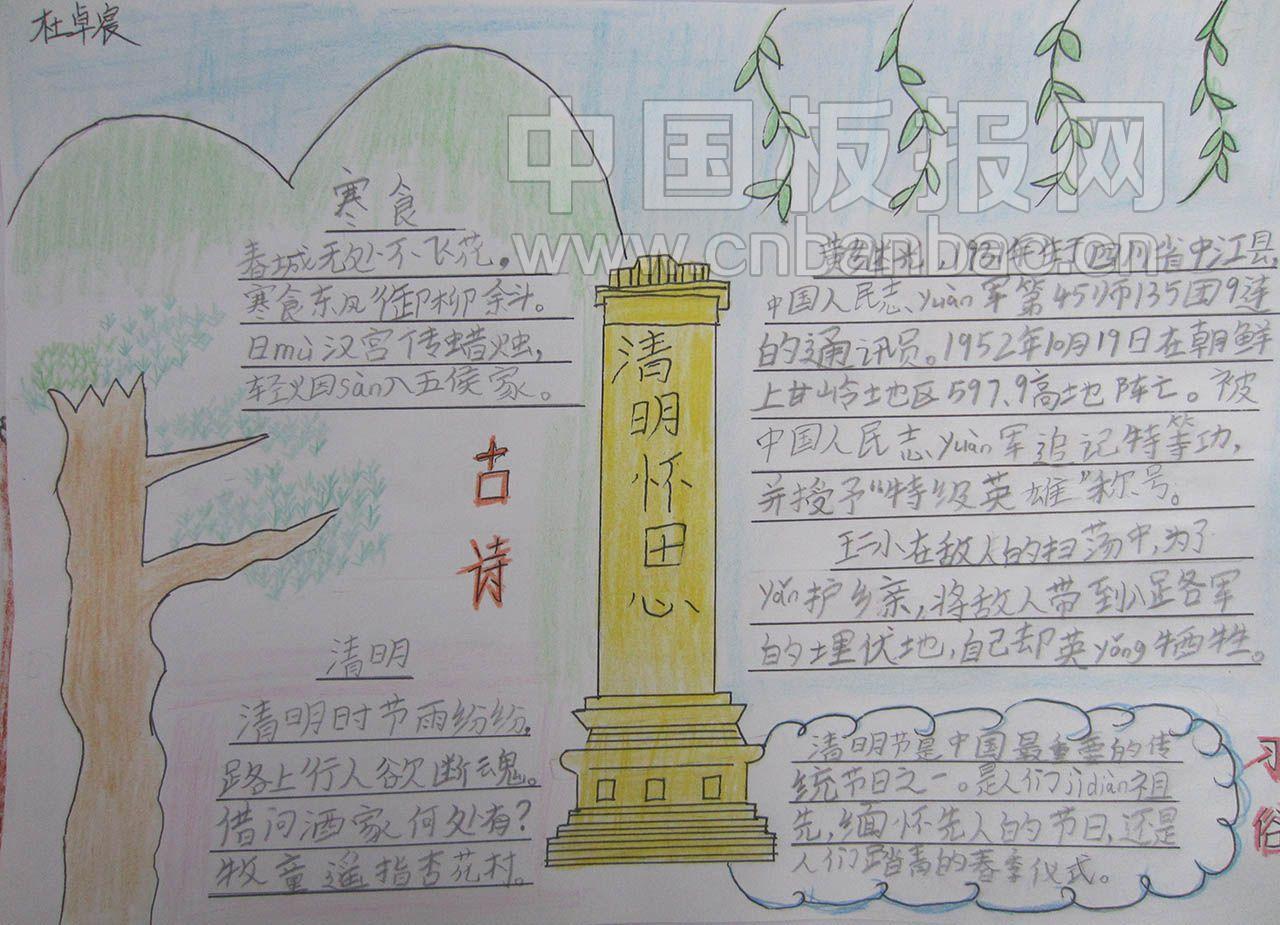 杜卓宸
中国板报网
www.cnbanbao.com
寒食
春城无处不飞花,
寒食东风御柳斜。
日mù汉宫传蜡烛,
轻火因sàn入五侯家。
古
诗
清明
清明时节雨纷纷,
路上行人欲断魂。
借问酒家何处有?
牧童遥指杏花村。
清
明
怀
田
心
黄继光,1931年生于四川省中江县,
中国人民志yuàn军第45师135团9连
的通讯员。1952年10月19日在朝鲜
上甘岭土地区597.9高地阵亡。被
中国人民志yuàn军追记特等功,
并授予“特级英雄”称号。
王二小在敌人的扫荡中,为了
yǎn护乡亲,将敌人带到八路军
的埋伏地,自己却英yǒng牺牲。
清明节是中国最重要的传
统节日之一。是人们jìdiàn祖
先,缅怀先人的节日,还是
人们踏青的春季仪式。
习
俗